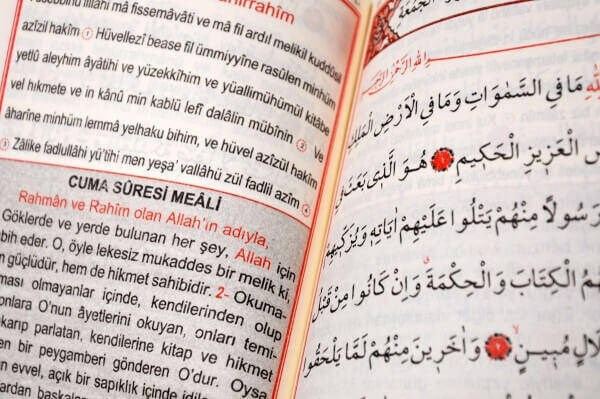 fissemâvâti ve mâ fil ardıl melikil kuddûsil
azîzil hakîm ① Hüvellezî bease fil ümmiyyîne rasûlen minhüm
yetlû aleyhim âyâtihi ve yüzekkîhim ve yüallimühümül kitâbe
vel hıkmete ve in kânû min kablü lefî dalâlin mübînin ② Ve
âharîne minhüm lemmâ yelhaku bihim, ve hüvel azîzül hakîm
③ Zâlike fadlullâhi yü'tîhi men yeşa' vallâhü zül fadlil azîm ④
CUMA SÛRESİ MEÂLİ
Rahmân ve Rahîm olan Allah'ın adıyla,
Göklerde ve yerde bulunan her şey, Allah için
bih eder. O, öyle lekesiz mukaddes bir melik ki,
güçlüdür, hem de hikmet sahibidir. 2- Okuma-
ması olmayanlar içinde, kendilerinden olup
onlara O'nun âyetlerini okuyan, onları temi-
parlatan, kendilerine kitap ve hikmet
bir peygamberi gönderen O'dur. Oysa
evvel, açık bir sapıklık içinde
الجمعة
اللّٰهِ الرَّحْمٰنِ الرَّحِيمِ
مَا فِي السَّمٰوَاتِ وَمَا فِي الْاَرْضِ الْمَلِكِ
الْعَزِيزِ الْحَكِيمِ ١ هُوَ الَّذِي بَعَثَ فِي
رَسُولًا مِنْهُمْ يَتْلُوا عَلَيْهِمْ اٰيَاتِهِ وَيُزَكِّيهِمْ
الْكِتَابَ وَالْحِكْمَةَ وَاِنْ كَانُوا مِنْ قَبْلُ
مُبِينٍ ٢ وَاٰخَرِينَ مِنْهُمْ لَمَّا يَلْحَقُوا